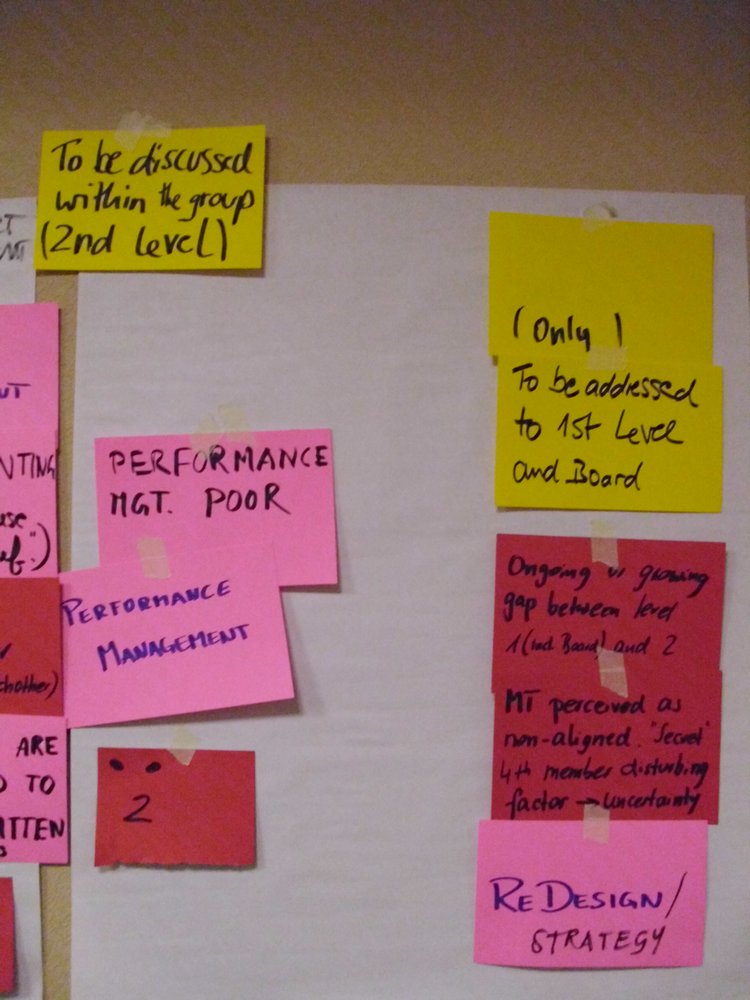 To be discussed
within the group
(2nd level)
(Only)
To be addressed
to 1st Level
and Board
PERFORMANCE
MGT. POOR
PERFORMANCE
MANAGEMENT
2
Ongoing or growing
gap between level
1 (incl Board) and 2
MT perceived as
non-aligned. "Secret"
4th member disturbing
factor → uncertainty
REDESIGN/
STRATEGY
NTING
chother)
ARE
TO
ITTEN